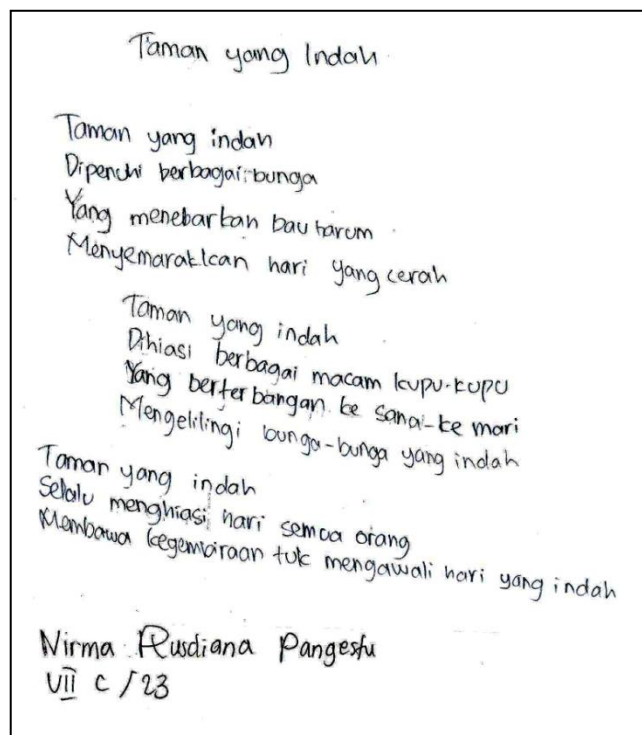 Taman yang Indah
Taman yang indah
Dipenuhi berbagai bunga
Yang menebarkan bau harum
Menyemarakkan hari yang cerah
Taman yang indah
Dihiasi berbagai macam kupu-kupu
Yang berterbangan ke sana-ke mari
Mengelilingi bunga-bunga yang indah
Taman yang indah
Selalu menghiasi hari semua orang
Membawa kegembiraan tuk mengawali hari yang indah
Nirma Rusdiana Pangestu
VII C / 23